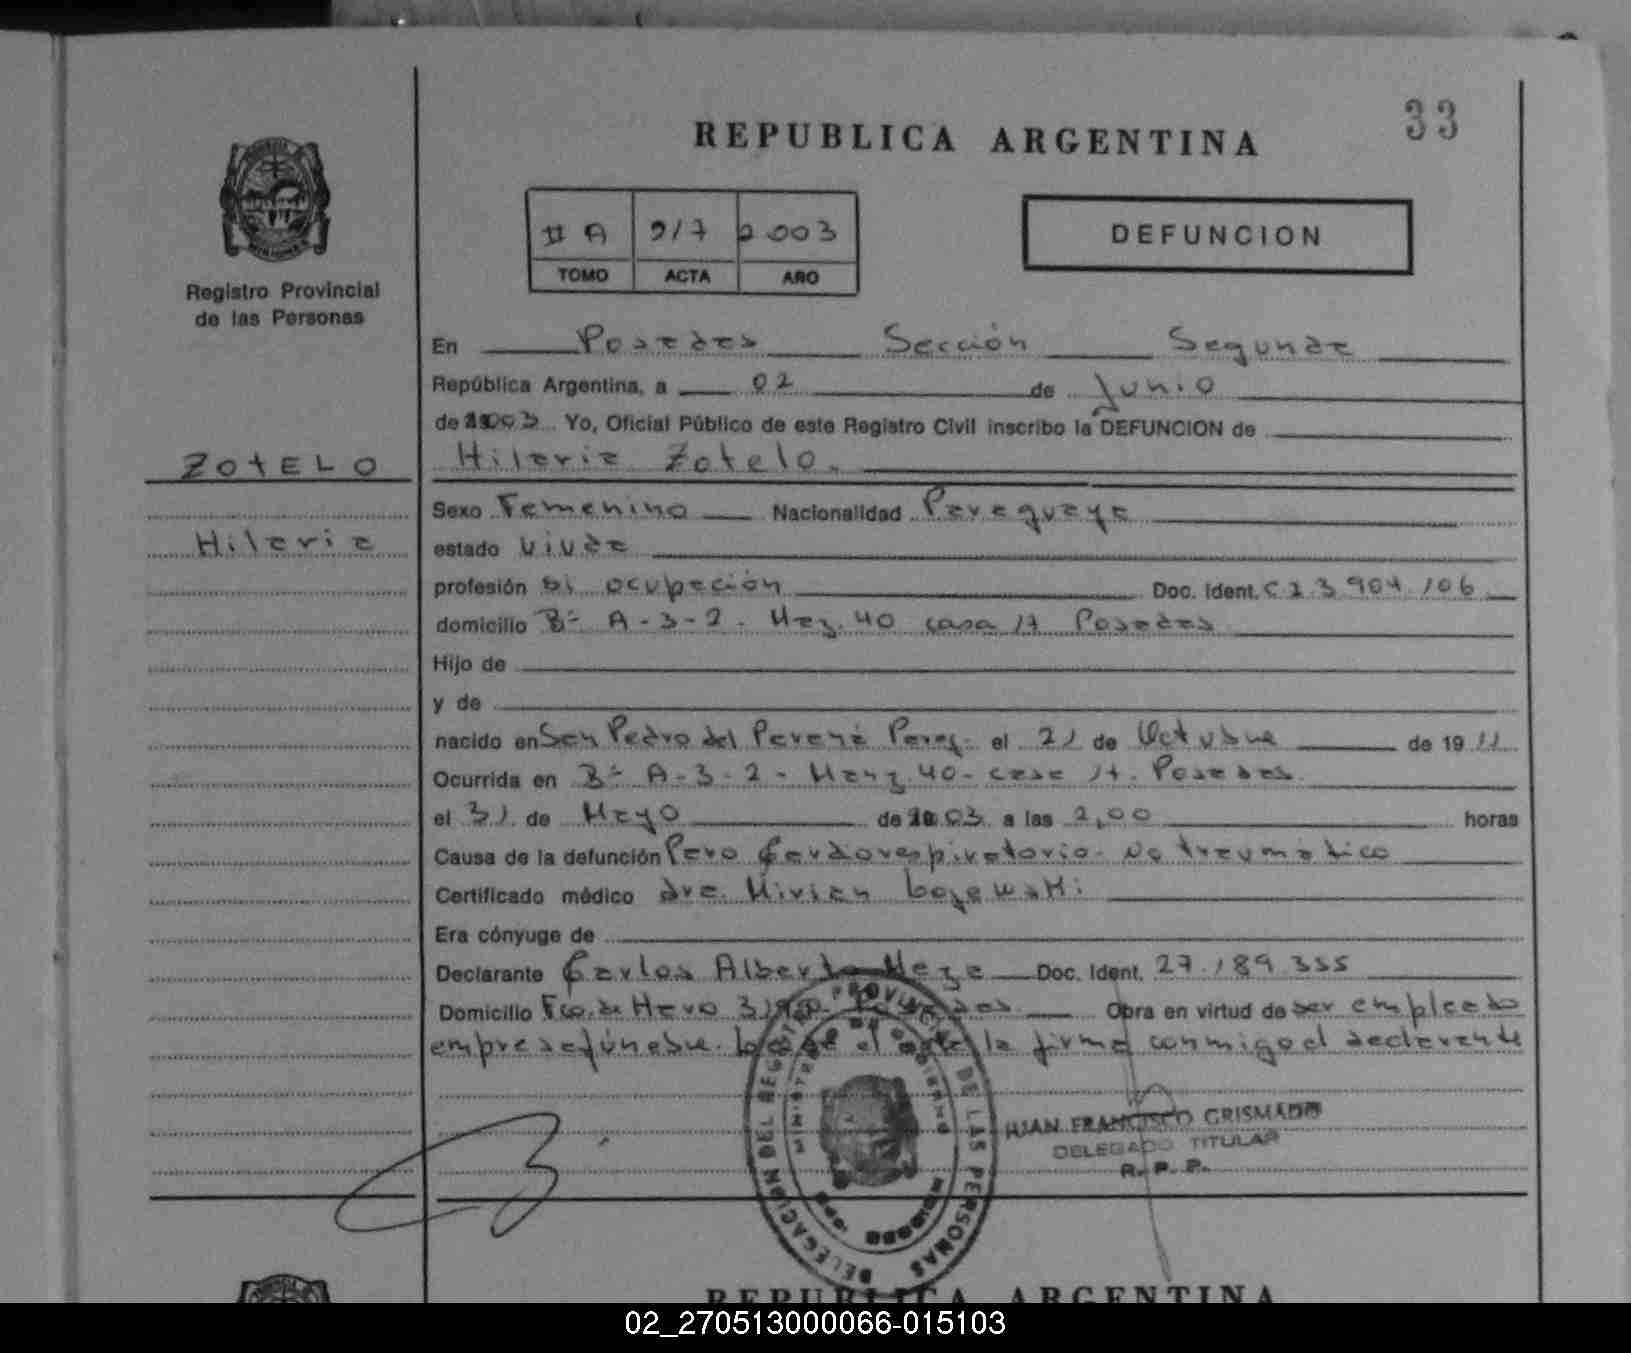 33
REPUBLICA ARGENTINA
II A 917 2003
TOMO ACTA AÑO
DEFUNCION
Registro Provincial
de las Personas
En Posadas Sección Segunda
República Argentina, a 02 de Junio
de 2003 Yo, Oficial Público de este Registro Civil inscribo la DEFUNCION de
ZOTELO
Hilaria Zotelo.
Sexo Femenino Nacionalidad Paraguaya
Hilaria
estado viuda
profesión s/ ocupación Doc. Ident. C I 3 904.106
domicilio Bº A-3-2. Maz. 40 casa 17 Posadas
Hijo de
y de
nacido en San Pedro del Paraná Parag. el 21 de Octubre de 19 11
Ocurrida en Bº A-3-2- Manz. 40- casa 17. Posadas.
el 31 de Mayo de 2003 a las 2,00 horas
Causa de la defunción Paro Cardorespiratorio- No traumatico
Certificado médico dra. Mirian
Era cónyuge de
Declarante Carlos Alberto Meza Doc. Ident. 27.189.355
Domicilio Fco. de Haro Posadas Obra en virtud de ser empleado
empresa fúnebre. el acta la firma conmigo el declarante
JUAN FRANCISCO GRISMADO
DELEGADO TITULAR
R. P. P.
DELEGACION DEL REGISTRO PROVINCIAL DE LAS PERSONAS
MINISTERIO DE GOBIERNO
REPUBLICA ARGENTINA
02_270513000066-015103